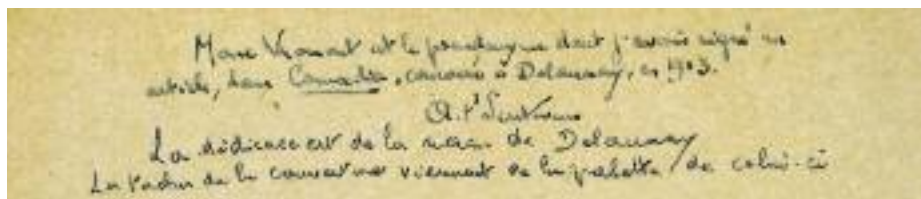 Marc Vromant est le pseudonyme dont j'avais signé un
article, dans Comœdia, consacré à Delaunay, en 1913.
La dédicace est de la main de Delaunay
Les taches de la couverture viennent de la palette de celui-ci